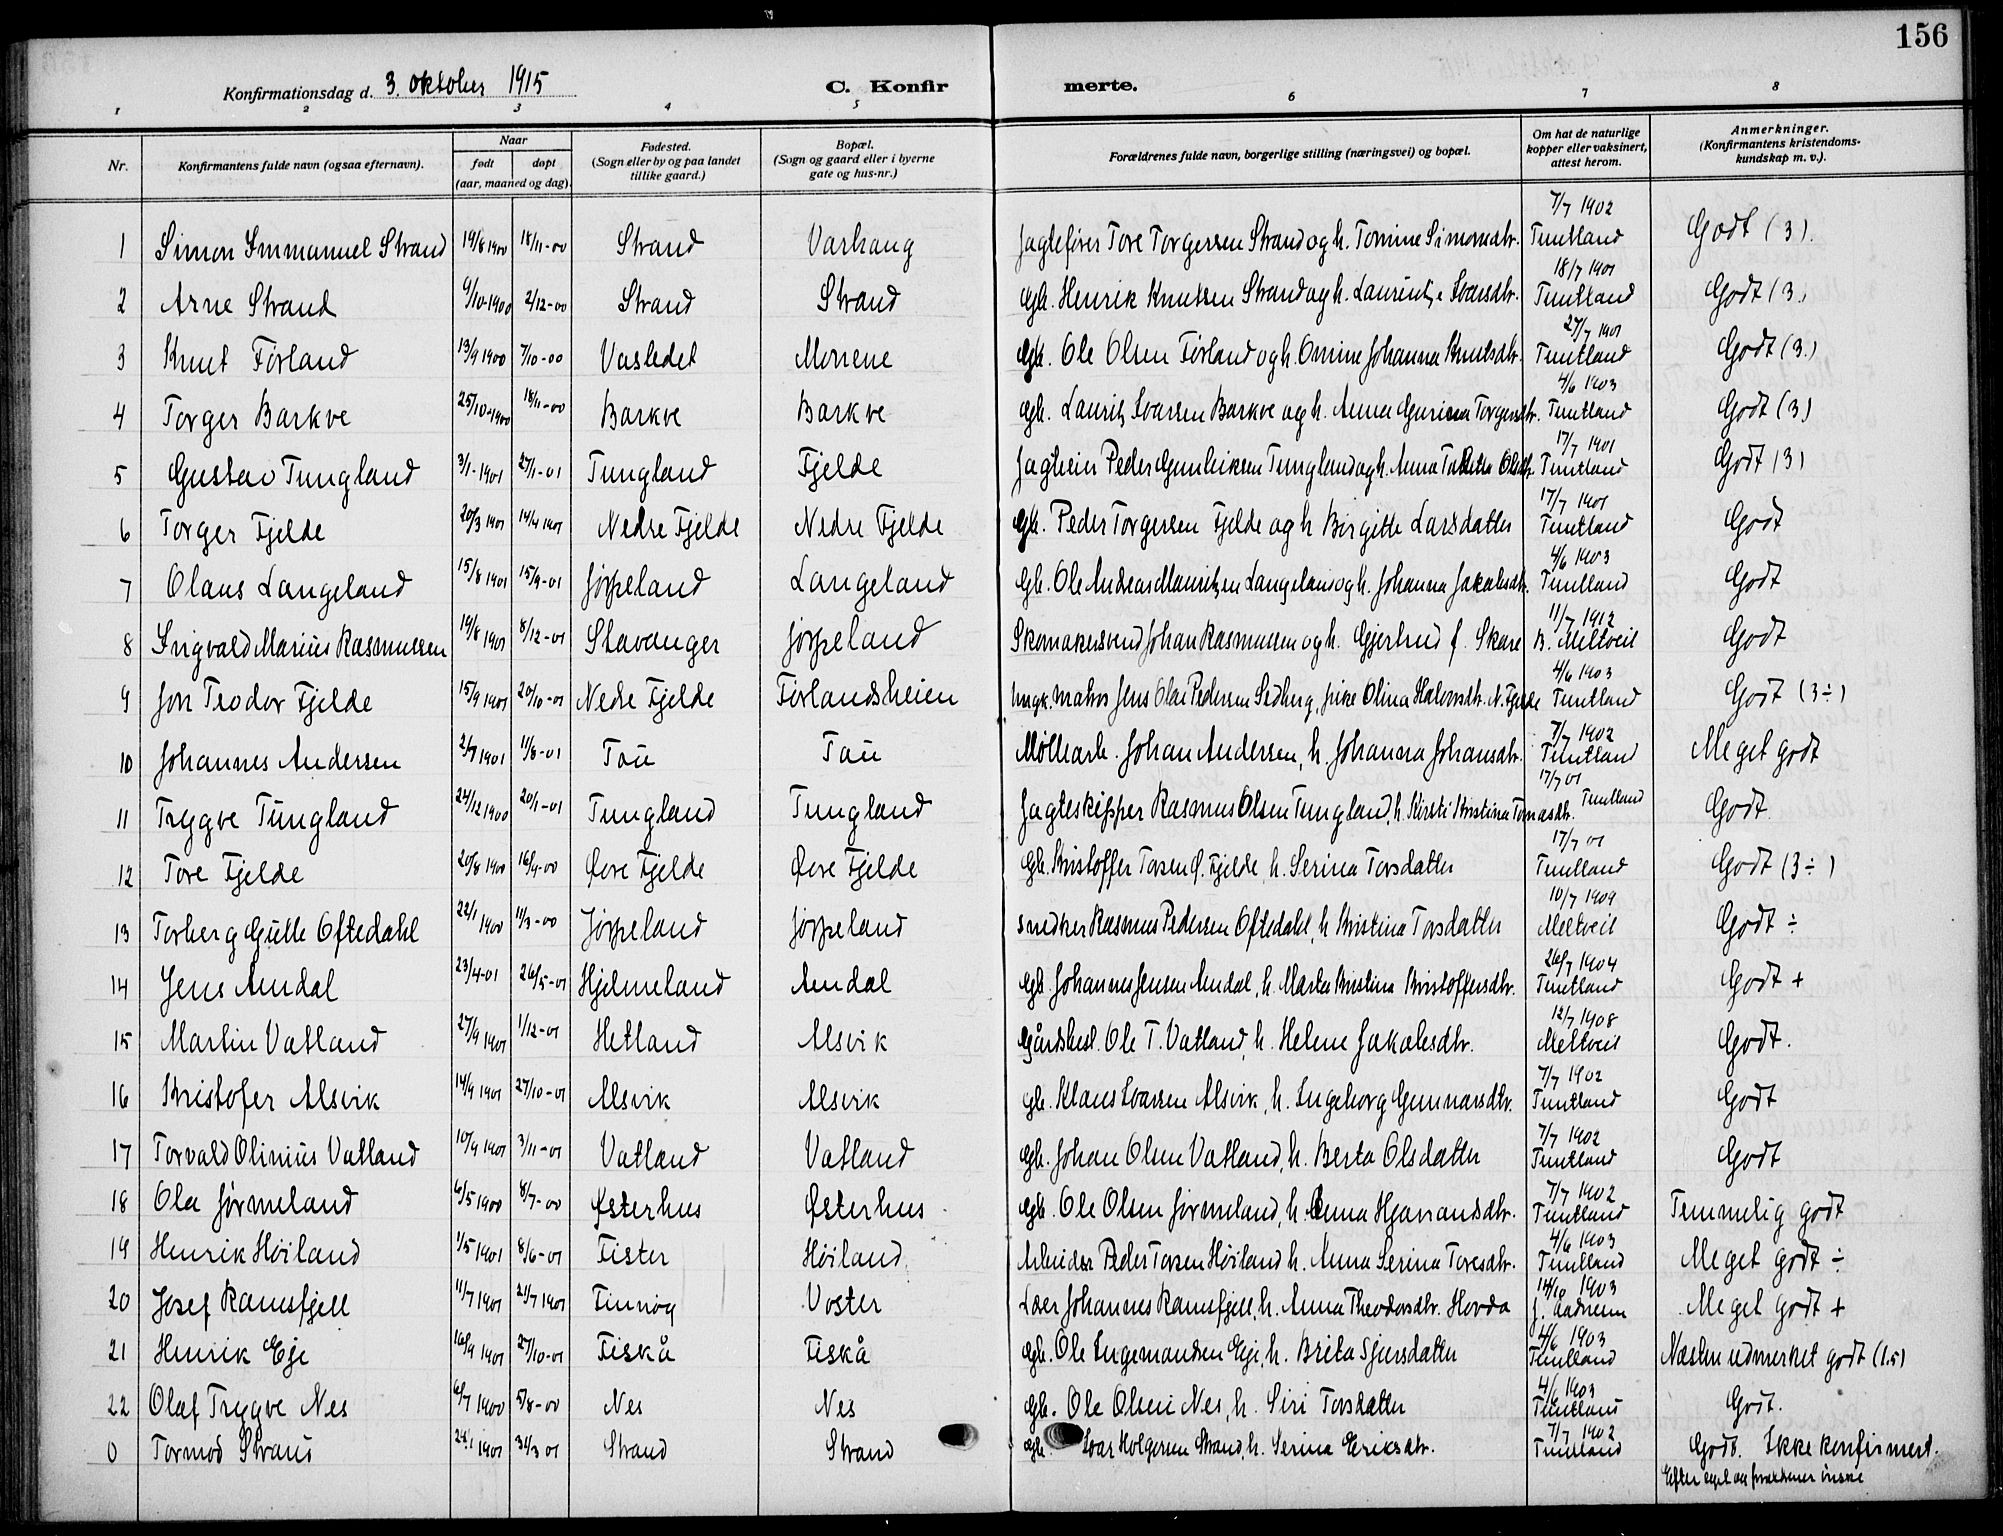 156
Konfirmationsdag d. 3. oktober 1915 C. Konfirmerte.
1 2 3 4 5 6 7 8
Nr. Konfirmantens fulde navn (ogsaa efternavn). Naar født døpt (aar, maaned og dag). Fødested. (Sogn eller by og paa landet tillike gaard.) Bopæl. (Sogn og gaard eller i byerne gate og hus-nr.) Forældrenes fulde navn, borgerlige stilling (næringsvei) og bopæl. Om hat de naturlige kopper eller vaksinert, attest herom. Anmerkninger. (Konfirmantens kristendomskundskap m. v.).
1 Simon Immanuel Strand 19/8 1900 18/11-00 Strand Varhaug Jagtefører Tore Torgersen Strand og h. Tomine Simonsdtr. 7/7 1902 Tuntland Godt (3).
2 Arne Strand 9/10-1900 2/12-00 Strand Strand Gbr. Henrik Knutsen Strand og h. Svarsdtr. 18/7 1901 Tuntland Godt (3)
3 Knut Førland 13/9 1900 7/10-00 Vasledet Monene Gbr. Ole Olsen Førland og h. Omine Johanna Knutsdtr. 27/7 1901 Tuntland Godt (3.)
4 Torger Barkve 25/10-1900 18/11-00 Barkve Barkve Gbr. Laurits Svarsen Barkve og h. Anna Gurina Torgersdtr. 4/6 1903 Tuntland Godt (3)
5 Gustav Tungland 3/1-1901 27/1-01 Tungland Fjelde Peder Gunleiksen Tungland og h. Anna Olsdtr. 17/7 1901 Tuntland Godt (3)
6 Torger Fjelde 20/3 1901 14/4 1901 Nedre Fjelde Nedre Fjelde Gbr. Peder Torgersen Fjelde og h Birgitte Larsdatter 17/7 1901 Tuntland Godt
7 Olaus Langeland 15/8 1901 15/9-01 Jørpeland Langeland Gbr. Ole Andreas Mauritzen Langeland og h. Johanna Jakobsdtr. 4/6 1903 Tuntland Godt
8 Ingvald Marius Rasmussen 19/8 1901 8/12-01 Stavanger Jørpeland Skomakersvend Johan Rasmussen og h. Gjertrud f. Skare 11/7 1912 B. Meltveit Godt
9 Jon Teodor Fjelde 15/9 1901 20/10-01 Nedre Fjelde Førlandsheien Ungk. matros Jens Olai Pedersen Sedberg, pike Olina Halvorsdtr. N. Fjelde 4/6 1903 Tuntland Godt (3÷)
10 Johannes Andersen 2/7 1901 11/8-01 Tau Tau Møllearb. Johan Andersen, h. Johanna Johansdtr. 7/7 1902 Tuntland Meget godt
11 Trygve Tungland 24/12 1900 20/1-01 Tungland Tungland Jagteskipper Rasmus Olsen Tungland, h. Kirsti Kristina Tomasdtr. 17/7 01 Tuntland Godt.
12 Tore Fjelde 20/8 1900 16/9-00 Øvre Fjelde Øvre Fjelde Gbr. Kristoffer Torsen Ø. Fjelde, h. Serina Torsdatter 17/7 01 Tuntland Godt (3÷)
13 Torberg Gutle Oftedahl 22/1 1900 11/3-00 Jørpeland Jørpeland Snedker Rasmus Pedersen Oftedahl, h Kristina Torsdatter 10/7 1909 Meltveit Godt ÷
14 Jens Amdal 23/4-01 26/5-01 Hjelmeland Amdal Gbr. Johannes Jensen Amdal, h. Marta Kristina Kristoffersdtr. 26/7 1904 Tuntland Godt +
15 Martin Vatland 27/9 1901 1/12-01 Hetland Alsvik Gårdbest. Ole T. Vatland, h. Helene Jakobsdtr. 12/7 1908 Meltveit Godt.
16 Kristofer Alsvik 14/9 1901 27/10-01 Alsvik Alsvik gbr. Klaus Ivarsen Alsvik, h. Ingeborg Gunnarsdtr. 7/7 1902 Tuntland Godt
17 Torvald Olinius Vatland 10/9 1901 3/11-01 Vatland Vatland gbr. Johan Olsen Vatland, h. Berta Olsdatter 7/7 1902 Tuntland Godt
18 Ola Jørmeland 6/5 1900 8/7-00 Østerhus Østerhus Gbr. Ole Olsen Jørmeland, h. Anna Hjavandsdtr. 7/7 1902 Tuntland Temmelig godt
19 Henrik Høiland 1/5 1901 8/6-01 Fister Høiland Arbeider Peder Torsen Høiland h. Anna Serina Toresdtr. 4/6 1903 Tuntland Meget godt ÷
20 Josef Ramsfjell 11/7 1901 21/7 1901 Finnøy Voster Lærer Johannes Ramsfjell, h. Anna Theodorsdtr. Hovda 14/10 1903 J. Aadneim Meget godt +
21 Henrik Eje 16/9 1901 27/10-01 Fiskå Fiskå gbr. Ole Ingemandsen Eje, h. Brita Sjursdatter 4/6 1903 Tuntland Næsten udmerket godt (1.5)
22 Olaf Trygve Nes 6/7 1900 5/8-00 Nes Nes Gbr. Ole Olsen Nes, h. Siri Torsdatter 4/6 1903 Tuntland Godt.
0 Tormod Strand 24/1 1901 31/3 01 Strand Strand Gbr. Ivar Holgersen Strand, h. Serina Eriksdtr. 7/7 1902 Tuntland Godt. Ikke konfirmert.
Efter eget og forældrenes ønske